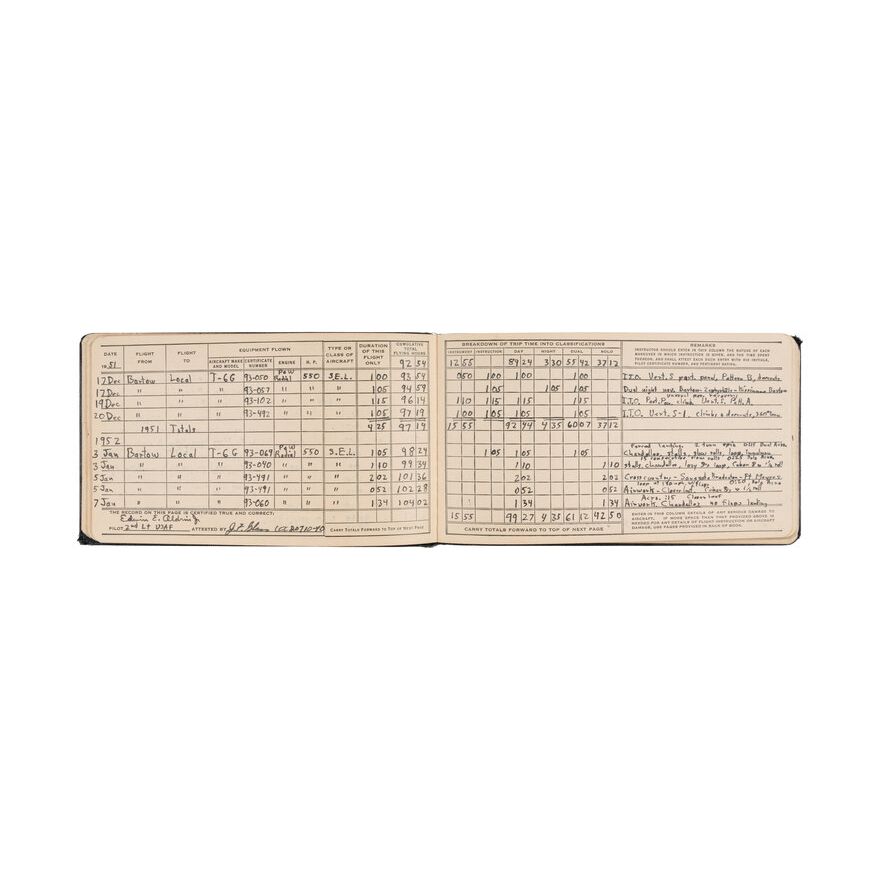 DATE FLIGHT FROM FLIGHT TO EQUIPMENT FLOWN TYPE OR CLASS OF AIRCRAFT DURATION OF THIS FLIGHT ONLY CUMULATIVE TOTAL FLYING HOURS
1951 AIRCRAFT MAKE AND MODEL CERTIFICATE NUMBER ENGINE H. P. 92 54
17 Dec Bartow Local T-6G 93-050 P&W Radial 550 S.E.L. 1 00 93 54
17 Dec " " " 93-057 " " " 1 05 94 59
19 Dec " " " 93-102 " " " 1 15 96 14
20 Dec " " " 93-492 " " " 1 05 97 19
1951 Totals 4 25 97 19
1952
3 Jan Bartow Local T-6G 93-069 P&W Radial 550 S.E.L. 1 05 98 24
3 Jan " " " 93-040 " " " 1 10 99 34
5 Jan " " " 93-491 " " " 2 02 101 36
5 Jan " " " 93-491 " " " 0 52 102 28
7 Jan " " " 93-060 " " " 1 34 104 02
THE RECORD ON THIS PAGE IS CERTIFIED TRUE AND CORRECT:
Edwin E. Aldrin Jr.
PILOT 2nd Lt USAF ATTESTED BY CARRY TOTALS FORWARD TO TOP OF NEXT PAGE
BREAKDOWN OF TRIP TIME INTO CLASSIFICATIONS REMARKS
INSTRUMENT INSTRUCTION DAY NIGHT DUAL SOLO
INSTRUCTOR SHOULD ENTER IN THIS COLUMN THE NATURE OF EACH
MANEUVER IN WHICH INSTRUCTION IS GIVEN, AND THE TIME SPENT
THEREON, AND SHALL ATTEST EACH SUCH ENTRY WITH HIS INITIALS,
PILOT CERTIFICATE NUMBER, AND PERTINENT RATING.
12 55 89 24 3 30 55 42 37 12
0 50 1 00 1 00 1 00 I.T.O. Vert. S part. panel, Pattern B,
1 05 1 05 1 05 Dual night nav. Bartow- Zephyrhills-
1 10 1 15 1 15 1 15 I.T.O. climb Vert. S Patt. A.
1 00 1 05 1 05 1 05 I.T.O. Vert. S-1, climbs & descents, 360°
15 55 92 44 4 35 60 07 37 12
Forced landing,
1 05 1 05 1 05 Chandelles, stalls, slow rolls, loop,
1 10 1 10 stalls, chandelles, lazy 8s, loop, Cuban 8 ½ roll
2 02 2 02 Cross country - Ft. Meyers
0 52 0 52 Airwork-
1 34 1 34 Airwork, Chandelles no flaps landing
15 55 99 27 4 35 61 12 42 50
ENTER IN THIS COLUMN DETAILS OF ANY SERIOUS DAMAGE TO
AIRCRAFT. IF MORE SPACE THAN THAT PROVIDED ABOVE IS
NEEDED FOR ANY DETAILS OF FLIGHT INSTRUCTION OR AIRCRAFT
DAMAGE, USE PAGES PROVIDED IN BACK OF BOOK.
CARRY TOTALS FORWARD TO TOP OF NEXT PAGE